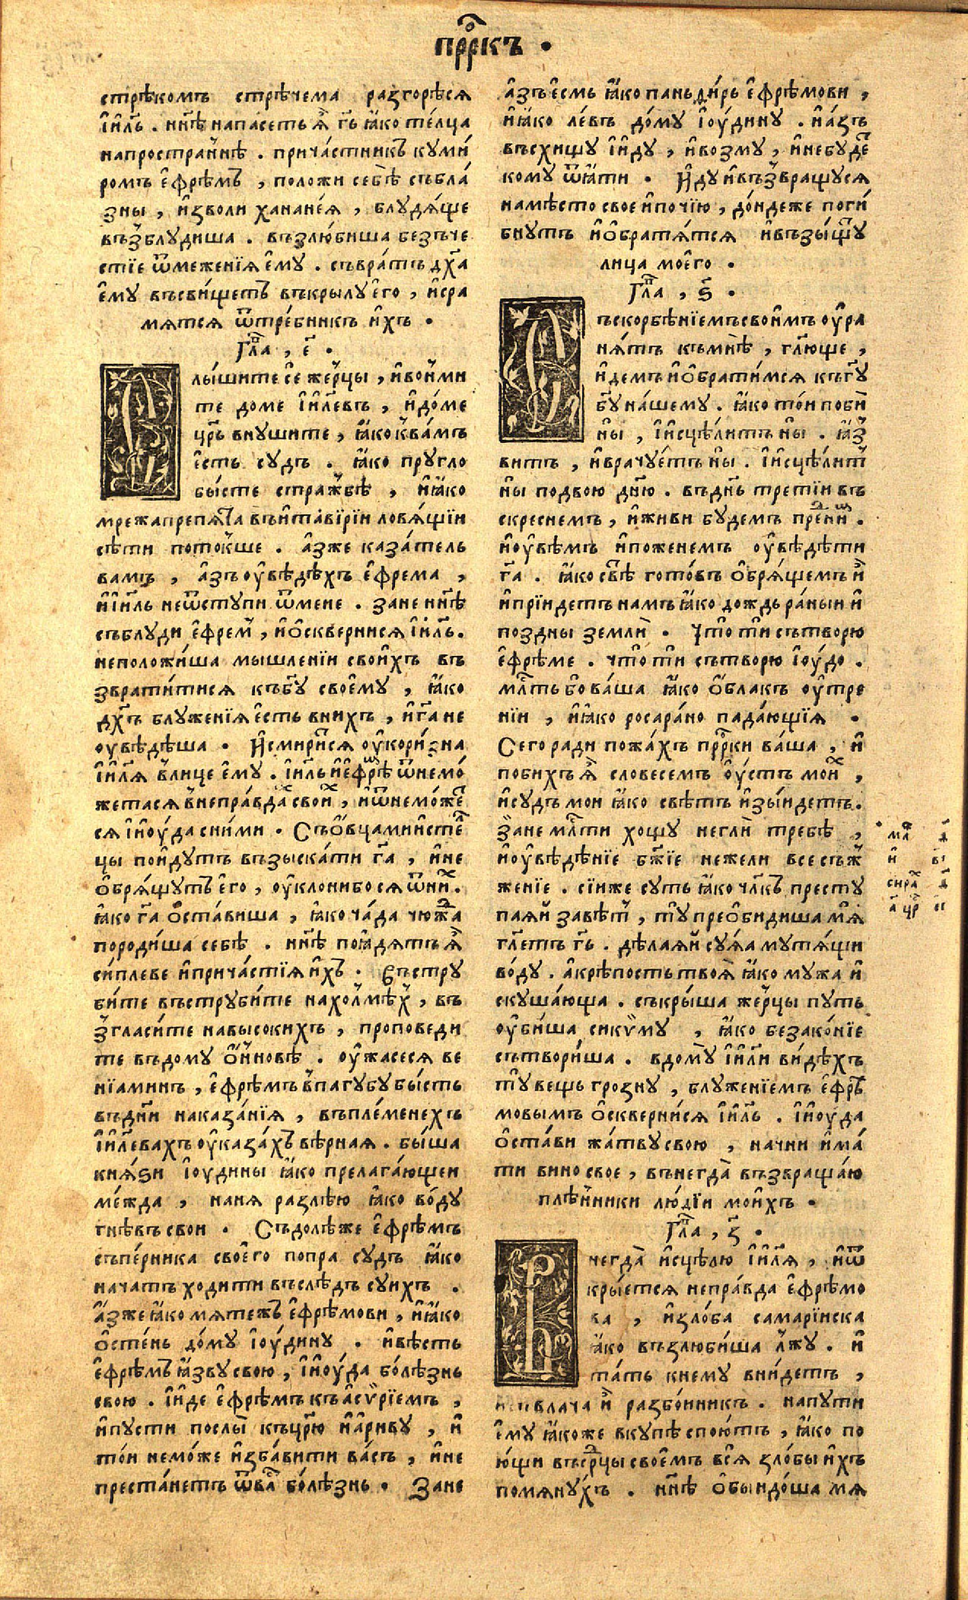 прⷪ҇рокъ ·
стрѣкомъ стрѣчема разгорѣся
і҆и҃ль . нн҃ѣ напасеть ѧ҆̀ гь҃ ꙗ҆ко те́лца
на пространнѣ . прича́стникъ куми́
ромъ е҆фре́мъ , положи себѣ събла́
зны , и҆зволи ханане́ѧ , блудѧ́ще
въⷥблудиша . възлюбиша безъче
стїе ѿ меженїѧ е҆му̀ . съвра́тъ дх҃а
е҆му въсви́щетъ въкрылу е҆го̀ , и҆сра
мѧтсѧ ѿ тре́бникъ и҆́хъ .
Гла҃ , є҃ .
Слы́шите сѐ же́рцы , и҆вонми
те доме і҆и҃левъ , и҆до́ме
цр҃ь внушите , ꙗ҆́ко к ва́мъ
е҆́сть судъ . ꙗ҆ко пругло
бы́сте стра́жбѣ , и҆ꙗ҆ко
мрежа препѧ́та въ и҆тавирїи ловѧ́щїи
сѣ́ти потоќше . а҆́зже каза́тель
вамъ , а҆́зъ ᲂу҆вѣ́дѣхъ е҆фрема ,
и҆ і҆и҃ль не ѿступи ѿ мене . зане нн҃ѣ
съблуди е҆фремъ , и҆ ѡ҆сквернисѧ і҆и҃ль .
не положи́ша мышленїи свои́хъ въ
звратитисѧ къ бг҃у своему , ꙗ҆ко
дх҃ъ блуженїѧ е҆́сть в ни́хъ , и҆ га҃ не
ᲂувѣ́дѣша . И҆ смири́сѧ ᲂу҆кори́зна
і҆и҃лѧ в лице е҆му̀ . і҆и҃ль и҆ е҆фре́мъ и҆знемо́
жетасѧ в непра́вдаⷯ своиⷯ , и҆ и҆знемо́же
сѧ і҆ і҆ᲂу́да с ни́ми . Съ ѡ҆вцами и҆ с те́л
цы пои́дутъ възыска́ти га҃ , и҆ не
ѡ҆брѧ́щутъ е҆го̀ , ᲂу҆клони бо сѧ ѿ ни́хъ .
ꙗ҆́ко га҃ ѡ҆ста́виша , ꙗ҆́ко ча́да чюжⷣа
породи́ша себѣ̀ . нн҃ѣ поꙗ҆дѧ́тъ ѧ҆̀
си́плеве и҆ прича́стїѧ и҆́хъ . Въстру
би́те въструби́те на холмѣ́хъ , въ
ꙁгласи́те на высокихъ , проповеди
те въ дому ѡ҆́новѣ . ᲂу҆жасесѧ ве
нїаминъ , е҆фре́мъ в па́губу бы́сть
въ дн҃и наказа́нїѧ , въ племенехъ
і҆и҃левахъ ᲂу҆каза́хъ вѣ́рнаѧ . бы́ша
кнѧ҆́зи і҆ᲂу́дины ꙗ҆ко прелага́ющеи
ме́жда , на нѧ разлїю ꙗ҆ко во́ду
гнѣвъ свои . Съдолѣ́же е҆фре́мъ
съпе́рника своего̀ попра судъ ꙗ҆ко
нача́тъ ходити въслѣ́дъ суи́хъ .
а҆́зже ꙗ҆ко мѧтежъ е҆фре́мови , и҆ꙗ҆ко
ѡ҆сте́нь до́му і҆ᲂу́дину . и҆ вѣ́сть
е҆фре́мъ ꙗ҆́зву свою , і҆ і҆ᲂу́да болѣ́знь
свою . і҆ и҆де е҆фре́мъ къ а҆сѵ́рїемъ ,
и҆ пусти послы̀ къ цр҃ю и҆а҆́риву , и҆
то́и не мо́же и҆зба́вити ва́съ , и҆ не
преста́нетъ ѿ ва́съ болѣ́знь . Зане
а҆́зъ е҆́смь ꙗ҆ко паньди́рь е҆фре́мови ,
и҆ ꙗ҆ко ле́въ до́му і҆ᲂу́дину . и҆ а҆́зъ
въсхищу і҆ и҆ду , и҆ возму , и҆ не буде́
кому ѿꙗ҆ти . И҆ду и҆ възвращусѧ
на мѣ́сто свое и҆ почїю , до́ндеже поги́
бнутъ и҆ ѡ҆братѧ́тсѧ и҆ възы́щу
лица моего .
Гла҃ , ѕ҃ .
Въ скорбѣ́нїемъ свои́мъ ᲂу҆ра
нѧ́тъ къ мнѣ̀ , гл҃юще ,
и҆́демъ и҆ ѡ҆брати́мсѧ къ гу҃
бг҃у на́шему . ꙗ҆ко то́и побѝ
ны , і҆ и҆сцѣ́литъ ны̀ . ꙗ҆́з
витъ , и҆ врачуе́тъ ны̀ . і҆ и҆сцѣли́т
ны подвою дн҃ю . въ дн҃ь третїи въ
скреснемъ , и҆ живи будемъ пре́д ни́мъ .
и҆ ᲂу҆вѣ́мъ и҆ поженемъ ᲂу҆вѣ́дѣти
га҃ . ꙗ҆ко свѣ́ готовъ ѡ҆брѧ́щемъ и҆̀
и҆ прїидетъ намъ ꙗ҆ко дождь ра́ныи и҆
поздны землѝ . Что̀ ти сътворю
е҆фре́ме . что̀ ти сътворю і҆ᲂу́до .
мл҃ть бо ва́ша ꙗ҆ко ѡ҆́блакъ ᲂу҆тре
нїи , и҆ ꙗ҆ко роса ра́но пада́ющїѧ .
Сего ради пожа́хъ прⷪ҇рки ва́ша , и҆
побихъ ѧ҆̀ словесемъ ᲂу҆́стъ мои́х ,
и҆ судъ мои ꙗ҆ко свѣ́тъ и҆зы́идетъ .
Зане мл҃ти хощу неглѝ требѣ̀ ,
и҆ ᲂу҆вѣ́дѣнїе бж҃їе нежели всесъж
же́нїе . сїи же суть ꙗ҆ко чл҃къ престу
паѧ́й завѣ́т , ту̀ преѡ҆бидиша мѧ̀
гл҃етъ гь҃ . дѣ́лаѧй суѧ́ а мутѧ́щи
во́ду . а҆ крѣ́пость твоѧ̀ ꙗ҆ко мужа и҆
скуша́юща . съкры́ша же́рцы путь
ᲂу҆би́ша сикѵ́му , ꙗ҆ко безако́нїе
сътвори́ша . в дому̀ і҆и҃ли ви́дѣхъ
ту̀ вещь грозну , блуженїемъ е҆фре́
мовымъ ѡ҆скверни́сѧ і҆и҃ль . і҆ і҆ᲂу́да
ѡ҆ста́ви жа́тву свою , начни и҆ма́
ти вино свое , вънегда̀ възвраща́ю
плѣ́нники лю́дїи мои́хъ .
Гла҃ , з҃ .
Внегда̀ и҆сцѣ́лю і҆и҃лѧ , и҆ ѿ
кры́етсѧ непра́вда е҆фре́мо
ва , и҆ зло́ба самари́нска
ꙗ҆ко възлюби́ша лжу̀ . и҆
та́ть к нему вни́детъ ,
и҆ совлача и҆̀ разбо́нникъ . на пути
е҆му̀ ꙗ҆коже вкупѣ спою́тъ , ꙗ҆ко по
ю́щи въ срⷣцы своемъ всѧ̀ злобы и҆́хъ
помѧну́хъ . нн҃ѣ ѡ҆быидо́ша мѧ